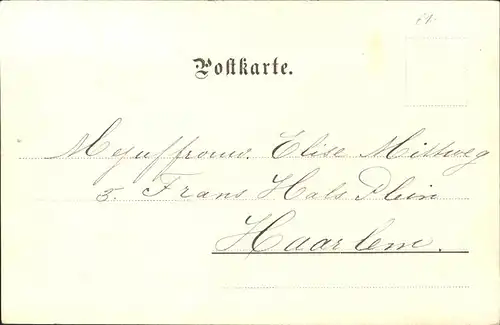 Postkarte.
Mejuffrouw. Elise Mittweg
5. Frans Hals Plein
Haarlem.